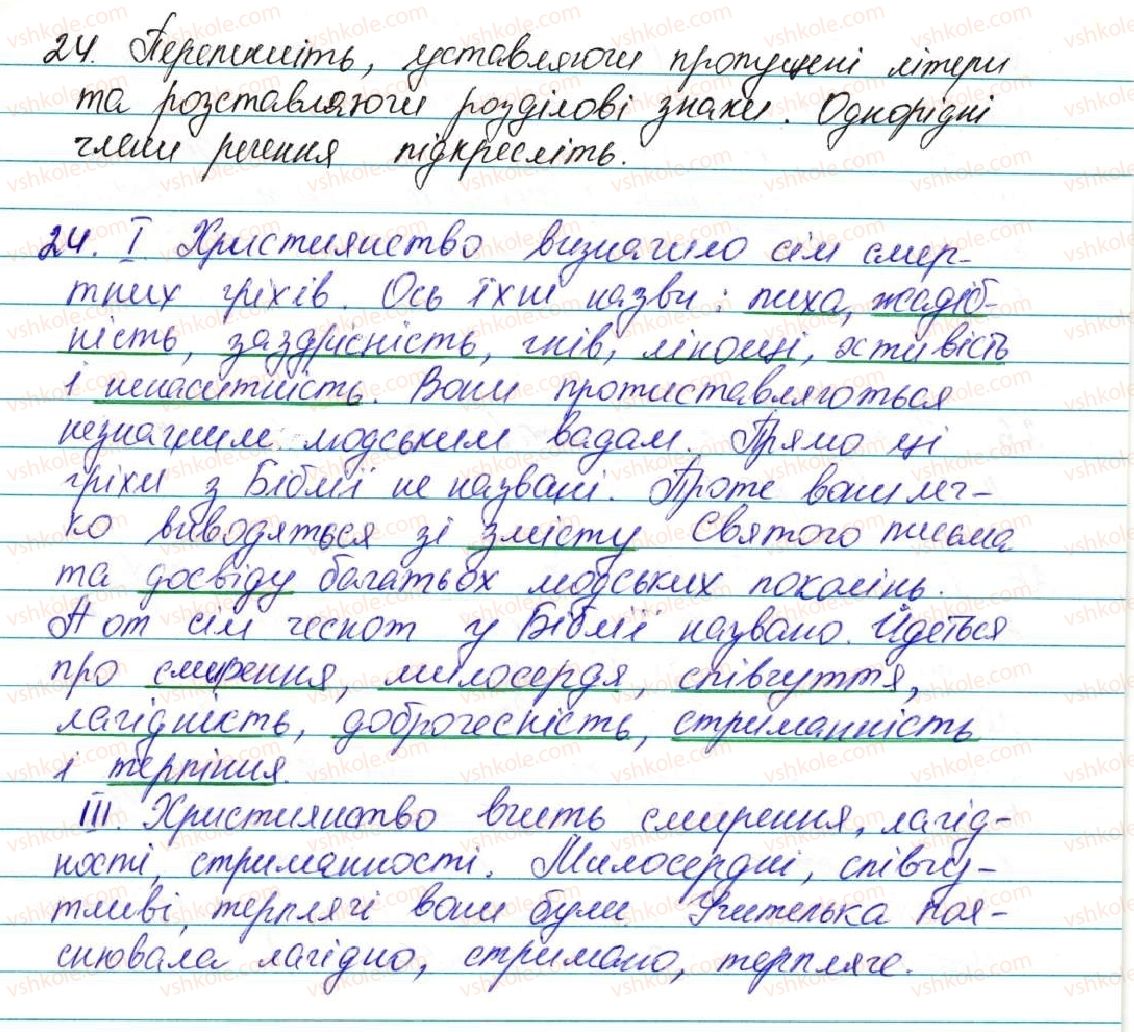 24. Перепишіть, уставляючи пропущені літери
та розставляючи розділові знаки. Однорідні
члени речення підкресліть.
24. І. Християнство визначило сім смер-
тних гріхів. Ось їхні назви: пиха, жадіб-
ність, заздрісність, гнів, лінощі, хтивість
і ненаситність. Вони протиставляються
незначним людським вадам. Прямо ці
гріхи з Біблії не названі. Проте вони лег-
ко виводяться зі змісту Святого письма
та досвіду багатьох людських поколінь.
А от сім чеснот у Біблії названо. Йдеться
про смирення, милосердя, співчуття,
лагідність, доброчесність, стриманність
і терпіння.
ІІІ. Християнство вчить смирення, лагід-
ності, стриманності. Милосердні, співчу-
тливі, терплячі вони були. Учителька поя-
снювала лагідно, стримано, терпляче.